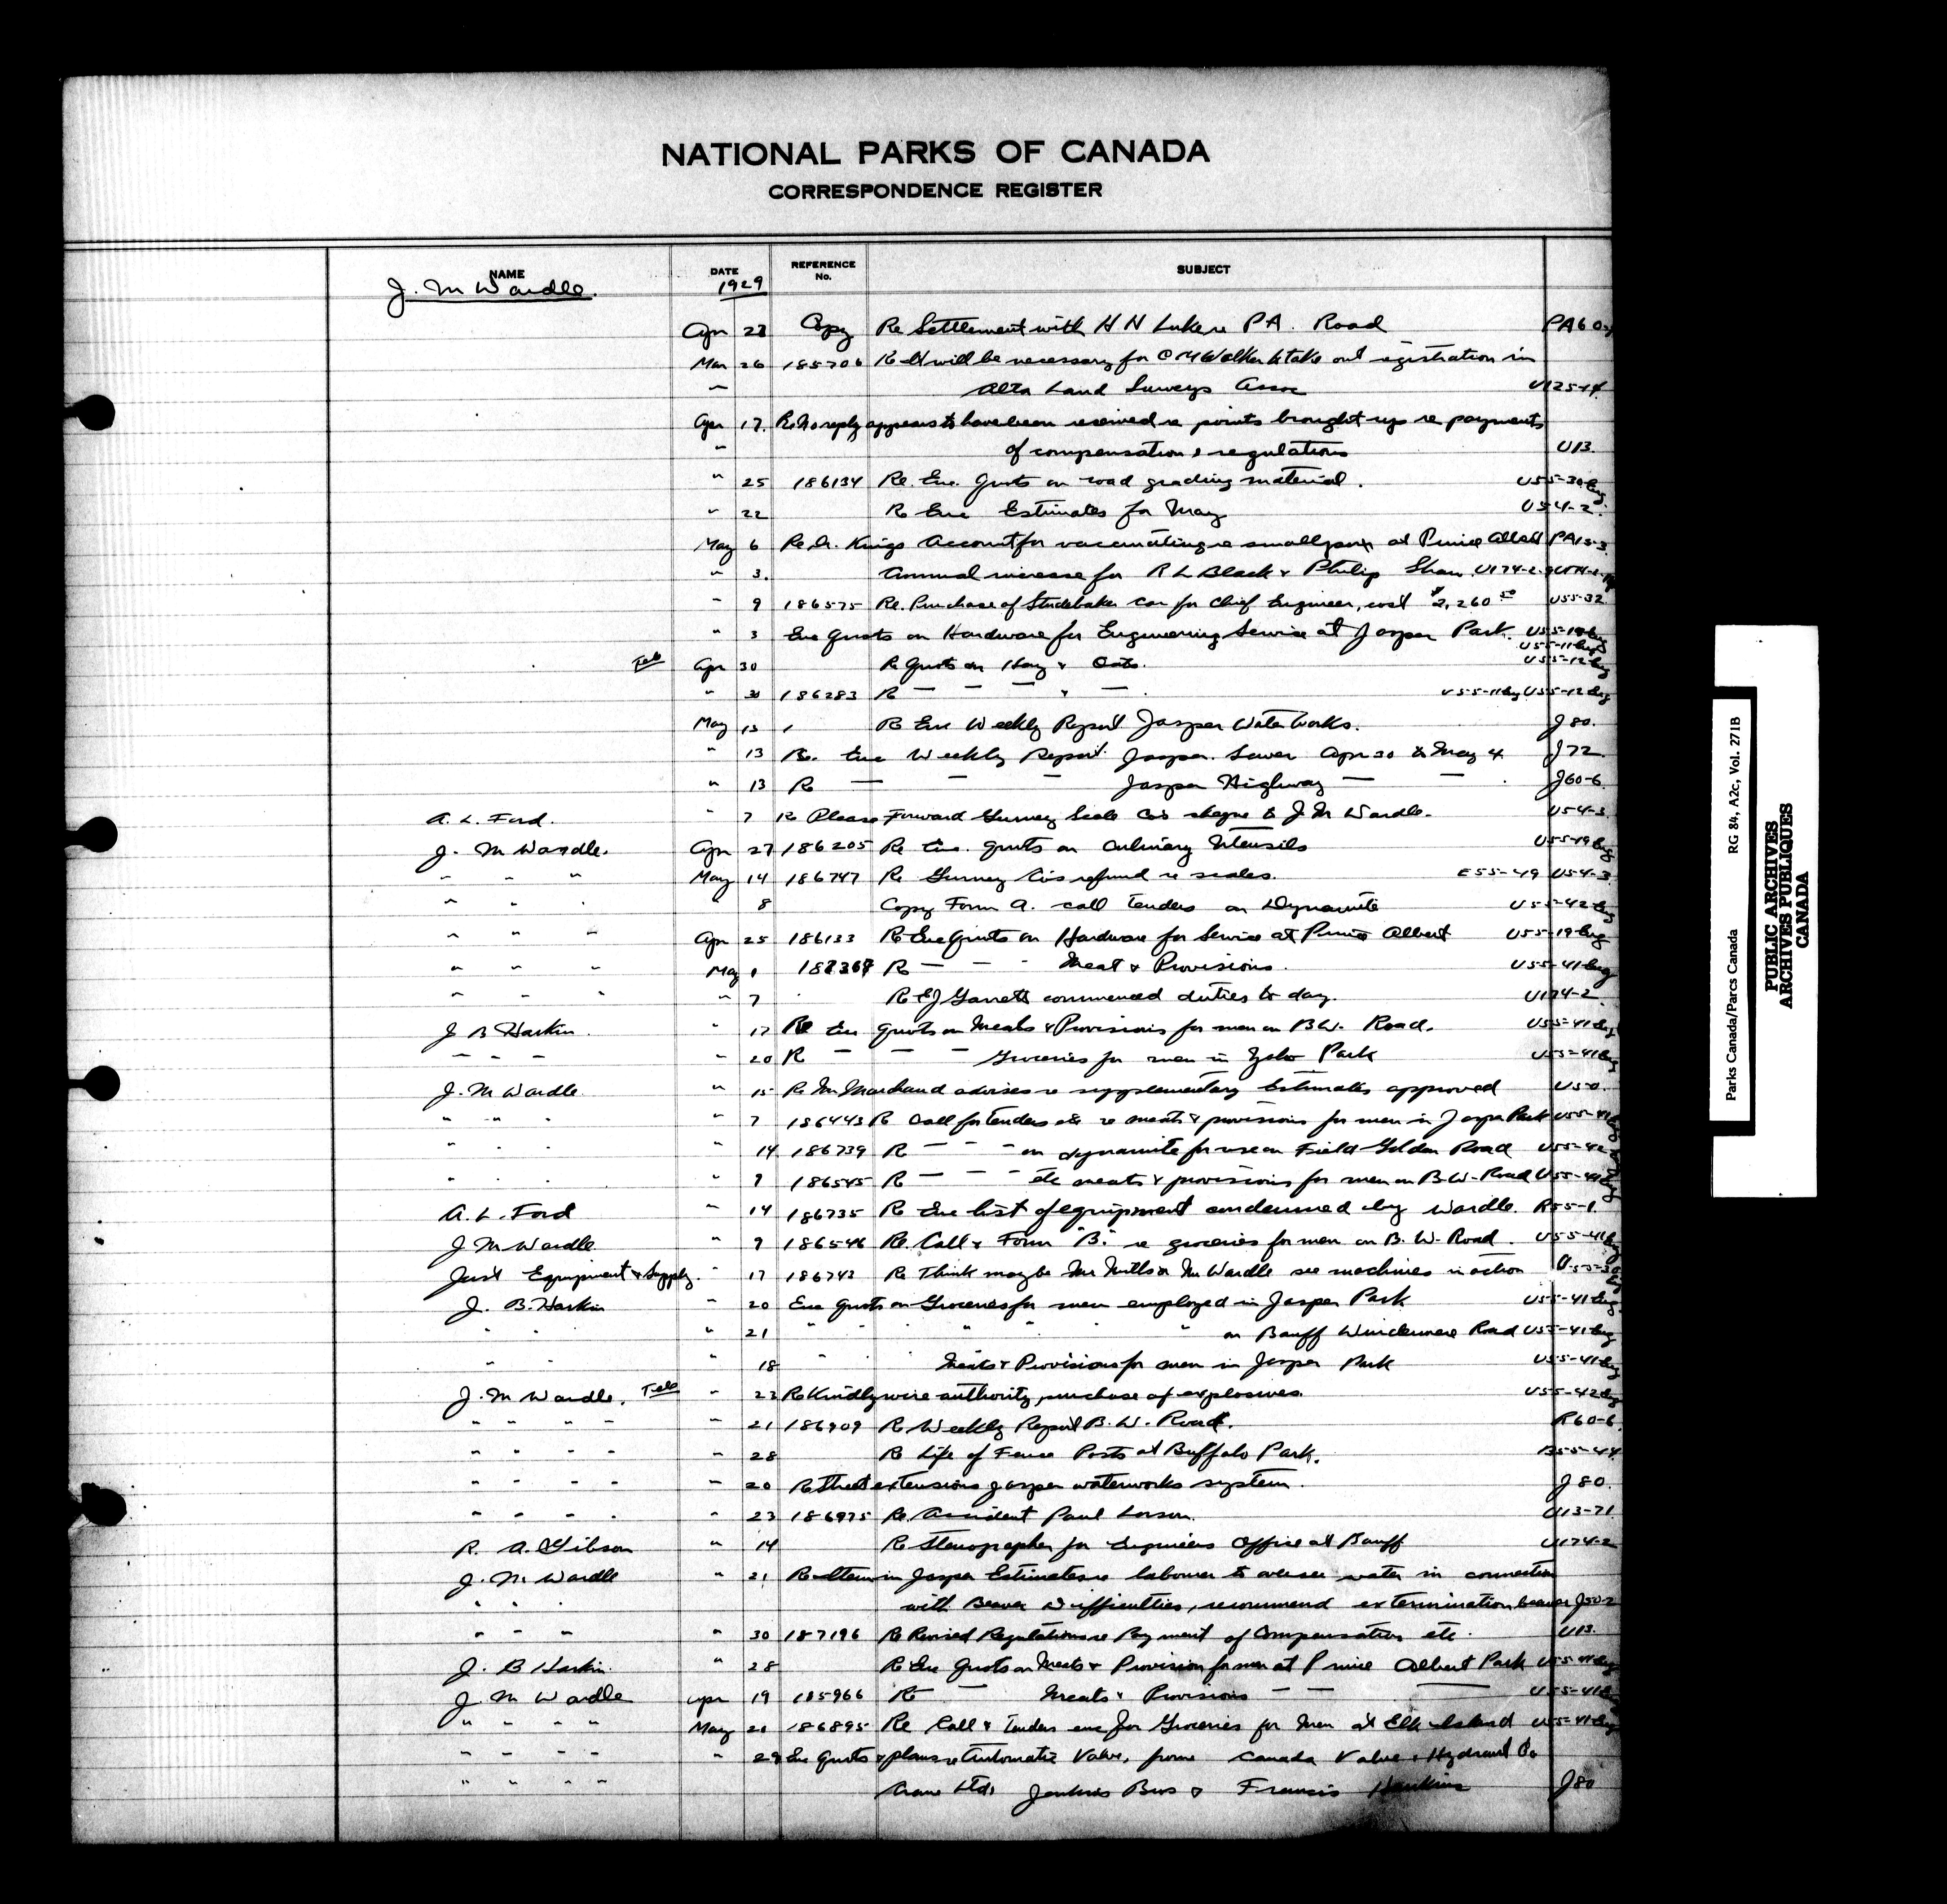 NATIONAL PARKS OF CANADA
CORRESPONDENCE REGISTER
NAME DATE REFERENCE No. SUBJECT
J. M Wardle. 1929
Apr 23 Copy Re Settlement with H N Luke re P A. Road PA60
Mar 26 185706 Re It will be necessary for C M Walker to take out registration in
" Alta Land Surveys Assoc U125-14
Apr 17. Re No reply appears to have been received re points brought up re payments
" of compensation & regulations U13.
" 25 186134 Re. Enc. Quots on road grading material. U55-30 Eng
" 22 Re Enc Estimates for May U54-2.
May 6 Re Dr. Kings Account for vaccinating re smallpox at Prince Albert PA15-3
" 3. Annual increase for R L Black & Philip Shaw U174-2
" 9 186575 Re. Purchase of Studebaker car for Chief Engineer, cost $2,260 50 U55-32
" 3 Enc Quots on Hardware for Engineering Service at Jasper Park. U55-19 Eng
U55-11 Eng
Tele Apr 30 Re Quots on Hay & Oats. U55-12 Eng
" 30 186283 R — — — " — . U55-11 Eng U55-12 Eng
May 13 Re Enc Weekly Report Jasper Water Works. J80.
" 13 Re. Enc Weekly Report Jasper Sewer Apr 30 & May 4 J72
" 13 R — — — Jasper Highway — — J60-6
A. L. Ford. " 7 Re Please Forward Gurney Scale Co's cheque to J M Wardle. U54-3
J. M Wardle. Apr 27 186205 Re Enc. Quots on Culinary Utensils U55-19 Eng
" " " May 14 186747 Re Gurney Co's refund re scales. E55-49 U54-3
" " " " 8 Copy Form A. call tenders on Dynamite U55-42 Eng
" " " Apr 25 186133 Re Enc Quots on Hardware for Service at Prince Albert U55-19 Eng
" " " May 1 R — — - Meat & Provisions. U55-41 Eng
" " " " 7 Re E J Garrett commenced duties to day. U174-2
J B Harkin. " 17 Re Enc Quots on Meats & Provisions for men on B.W. Road. U55-41 Eng
" " " " 20 R — — — Groceries for men in Yoho Park U55-41 Eng
J. M Wardle " 15 Re Mr Marchand advises re supplementary Estimates approved U50.
" " " " 7 186443 Re Call for tenders etc re meats & provisions for men in Jasper Park U55-41 Eng
" " " " 14 186739 R — — - on dynamite for use on Field Golden Road U55-42
" " " 9 186545 R — — - etc meats & provisions for men on B.W. Road U55-41 Eng
A. L. Ford " 14 186735 Re Enc list of equipment condemned by Wardle. R55-1.
J M Wardle " 9 186546 Re. Call & Form "B." re groceries for men on B. W. Road. U55-41 Eng
Equipment & Supply. " 17 186743 Re Think maybe Mr Mills & Mr Wardle see machines in action
J. B. Harkin " 20 Enc Quots on Groceries for men employed in Jasper Park U55-41 Eng
" " " 21 " " " " " on Banff Windermere Road U55-41 Eng
" " " 18 " " Meats & Provisions for men in Jasper Park U55-41 Eng
J. M Wardle. Tele " 22 Re Kindly wire authority, purchase of explosives. U55-42 Eng
" " " " " 21 186909 Re Weekly Report B. W. Road. R60-6
" " " " " 28 Re Life of Fence Posts at Buffalo Park. B55-44
" " " " " 20 Re Street extensions Jasper waterworks system. J80.
" " " " " 23 186975 Re. Accident Paul Larson. U13-71
R. A. Gibson " 14 Re Stenographer for Engineers Office at Banff U174-2
J. M. Wardle " 21 Re Item in Jasper Estimates re labourer to oversee water in connection
" " " with Beaver Difficulties, recommend extermination beaver J50-2
" " " " 30 187196 Re Revised Regulations re Payment of Compensation etc. U13.
J. B Harkin. " 28 Re Enc Quots on Meats & Provision for men at Prince Albert Park U55-41 Eng
J. M Wardle Apr 19 185966 Re — Meats & Provisions — — — U55-41
" " " " May 21 186895 Re Call & tenders enc for Groceries for Men at Elk Island U55-41 Eng
" " " " " 29 Enc Quots & plans re Automatic Valve. from Canada Valve & Hydrant Co
" " " " Crane Ltd. Jenkins Bros & Francis Hankins J80
Parks Canada/Parcs Canada RG 84, A2c, Vol. 271B
PUBLIC ARCHIVES
ARCHIVES PUBLIQUES
CANADA